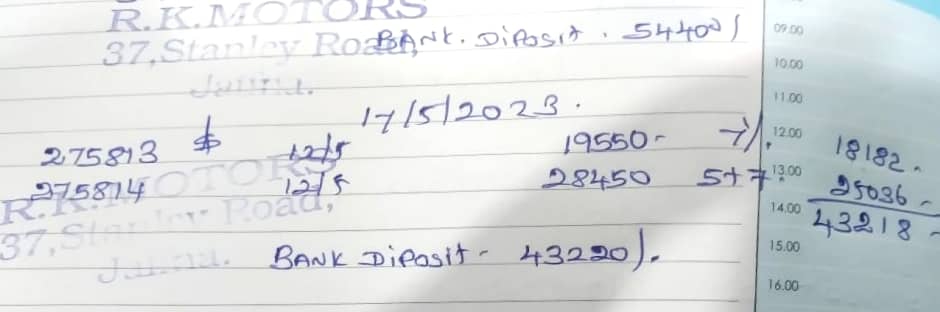 R.K.MOTORS
37,Stanley Road, BANK. DiPosit. 54400/
Jaffna.
17/5/2023.
275813 $ 12/5 19550- 7%.
275814 12/5 28450 5+7
R.K.MOTORS
37,Stanley Road,
Jaffna. BANK DiPosit- 43220/.
09.00
10.00
11.00
12.00
13.00
14.00
15.00
16.00
18182.
25036-
43218-